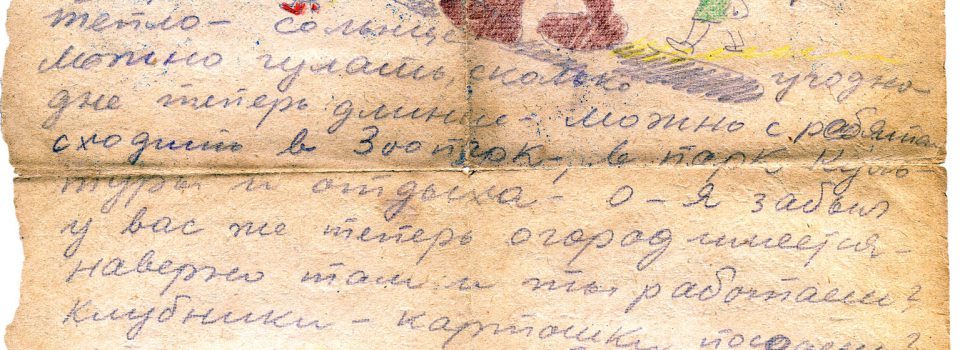 тепло - солнце
можно гулять сколько угодно
дне теперь длинные - можно с ребятами
сходить в Зоопарк, в парк Куль-
туры и отдыха - о - я забыл
у вас же теперь огород имеется -
наверно там и ты работаеш?
Клубники - картошки посадили?